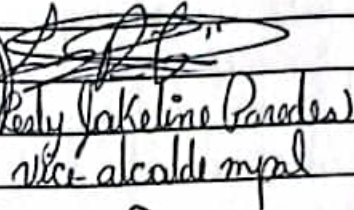 Kesly Jakeline Paredes
vice-alcalde mpal